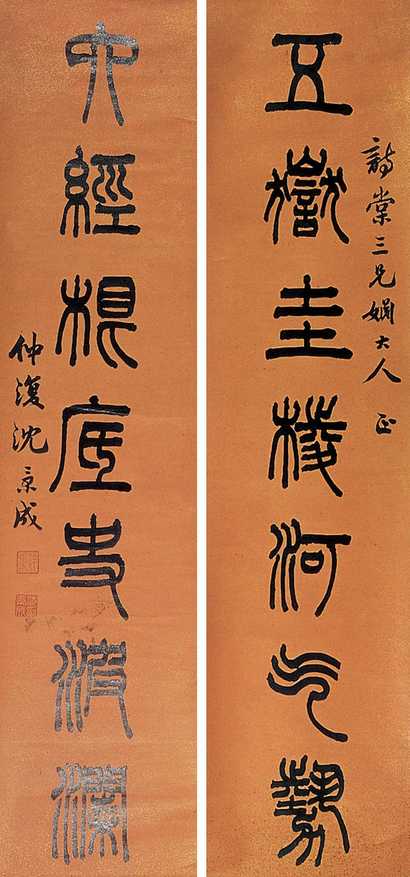 詩棠三兄姻大人正
五嶽圭棱河气勢
六經根底史波瀾
仲復沈秉成